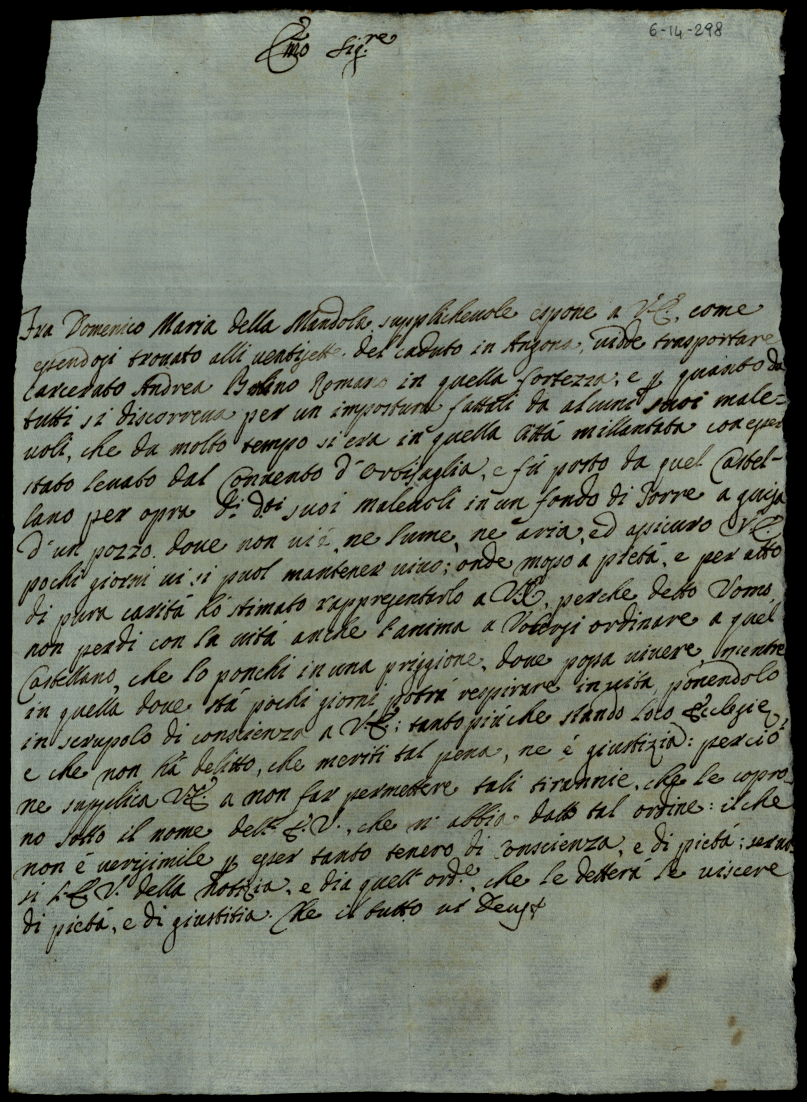 6-14-298
Emo Sig.re
Fra Domenico Maria della Mandola supplichevole espone a V.E., come
essendosi trovato alli ventisette del caduto in Ancona, vidde trasportare
carcerato Andrea Romano in quella fortezza; e p quanto da
tutti si discorreva per un impostura fattali da alcuni suoi male=
voli, che da molto tempo si era in quella Città millantata con esser
stato levato dal Convento d'Orbisaglia, e fù posto da quel Castel-
lano per opra di doi suoi malevoli in un fondo di Torre a guisa
d'un pozzo, dove non vi è, ne lume, ne aria, ed assicuro V.E.
pochi giorni vi si puol mantener vivo; onde mosso a pietà, e per atto
di pura carità hò stimato rappresentarlo a V.E., perche detto Uomo
non perdi con la vità anche l'anima a Volersi ordinare a quel
Castellano, che lo ponchi in una priggione, dove possa vivere, mentre
in quella dove stà pochi giorni potrà respirare in vita, ponendolo
in scrupolo di conscienza a V.E.; tanto più che stando loco Ecclesie,
e che non hà delitto, che meriti tal pena, ne è giustizia: perciò
ne supplica V.E. a non far permettere tali tirannie, che le copro-
no sotto il nome dell' E.V., che n'abbia dato tal ordine: il che
non è verisimile p esser tanto tenero di conscienza, e di pietà; serva
si l'E.V. della notizia, e dia quell' ord.e, che le detterà le viscere
di pietà, e di giustitia. Che il tutto ut Deus